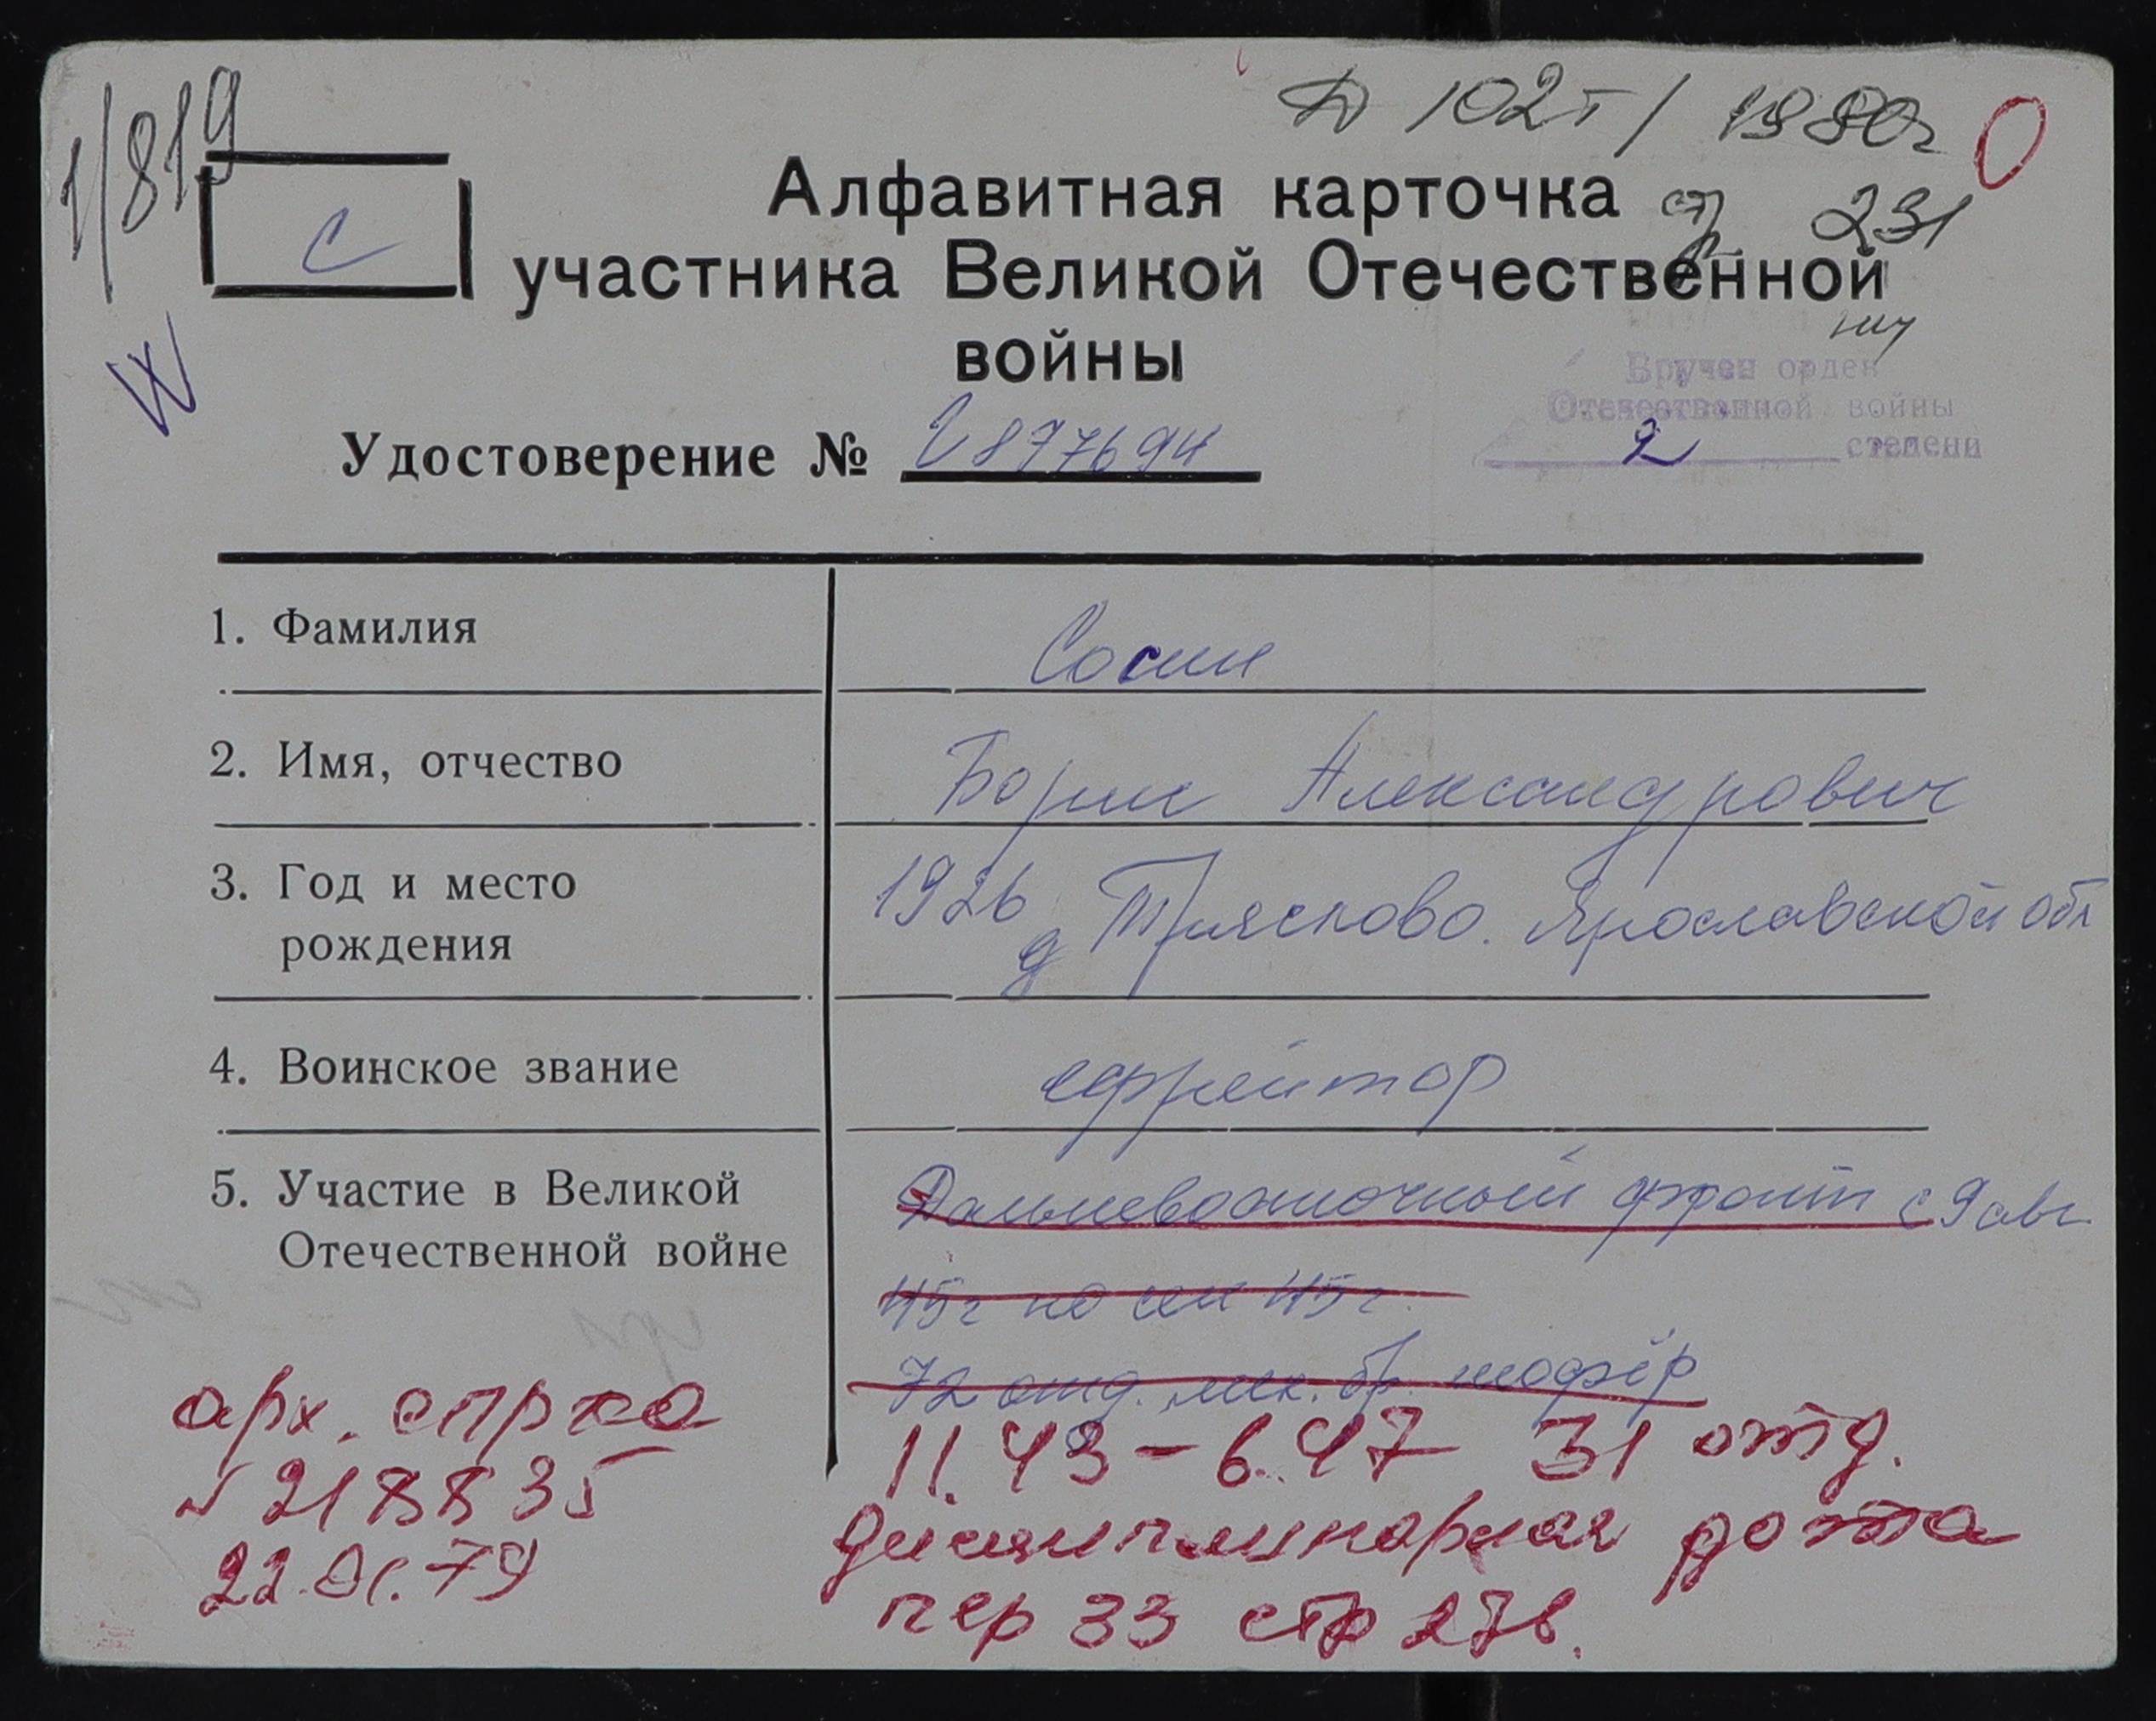 1/819
Д 102т/1980г
О
С
Алфавитная карточка
стр 231
участника Великой Отечественной
войны
Вручен орден
Отечественной войны
2 степени
Удостоверение №
1. Фамилия Сосин
2. Имя, отчество Борис Александрович
3. Год и место
рождения
1926 д Трясково. Ярославской обл
4. Воинское звание ефрейтор
5. Участие в Великой
Отечественной войне
Дальневосточный фронт с 9 авг
45г по сен 45г.
72 отд. мех. бр. шофёр
11.43-6.47 31 отд.
дисциплинарная рота
пер 33 стр 276.
арх. спрка
№ 218835
22.01.79